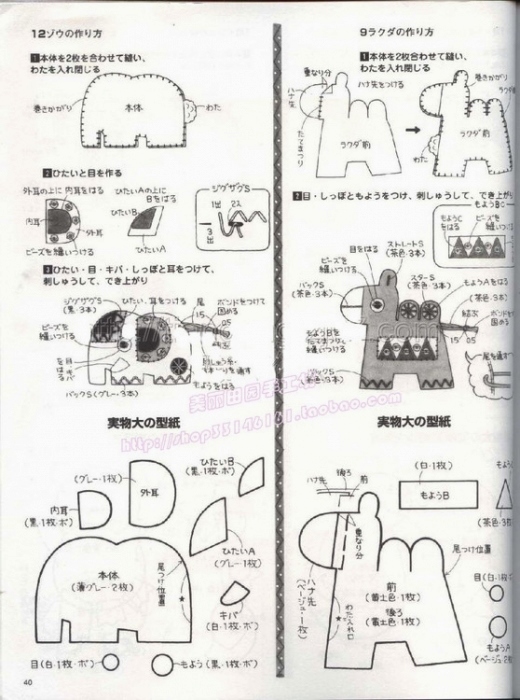 12ゾウの作り方
1本体を2枚を合わせて縫い、
わたを入れ閉じる
巻きかがり
本体
わた
2ひたいと目を作る
外耳の上に内耳をはる
ひたいAの上に
Bをはる
内耳
ひたいB
ひたいA
ビーズを縫いつける
ジグザグS
1出
2入
3出
3ひたい・目・キバ・しっぽと耳をつけて、
刺しゅうして、でき上がり
ジグザグS
(黒・3本)
ひたい、耳をつける
尾
ボンドをつけて
固める
ビーズを
縫いつける
15
05
バックS(グレー・3本)
もようをはる
実物大の型紙
(グレー・1枚)
外耳
ひたいB
(黒・1枚・ボ)
内耳
(黒・1枚・ボ)
ひたいA
(グレー・1枚)
本体
(薄グレー・2枚)
尾つけ位置
キバ
(白・1枚・ボ)
目(白・1枚・ボ)
もよう(黒・1枚・ボ)
40
9ラクダの作り方
1本体を2枚合わせて縫い、
わたを入れ閉じる
重なり分
ハナ先をつける
ハナ先
たてまつり
ラクダ前
巻きかがり
わた
ラクダ前
2目・しっぽともようをつけ、刺しゅうして、でき上がり
もようC
をはる
ビーズを
縫いつけ
目をはる
ストレートS
(茶色・3本)
ビーズを
縫いつける
スターS
(茶色・3本)
もようAをはる
バックS
(茶色・3本)
(茶色・3本)
結ぶ
15
05
もようBを
たてまつりで
縫いつける
バックS
(茶色・3本)
尾を通す
http://shop33146161.taobao.com
実物大の型紙
ハナ先
後ろ
前
(白・1枚)
もようB
重なり分
(茶色・3枚
尾つけ位置
ハナ先
(ベージュ・1枚)
前
(黄土色・1枚)
後ろ
(黄土色・1枚)
わた入れ口
目(白・1枚
もようA
(ベージュ・2枚